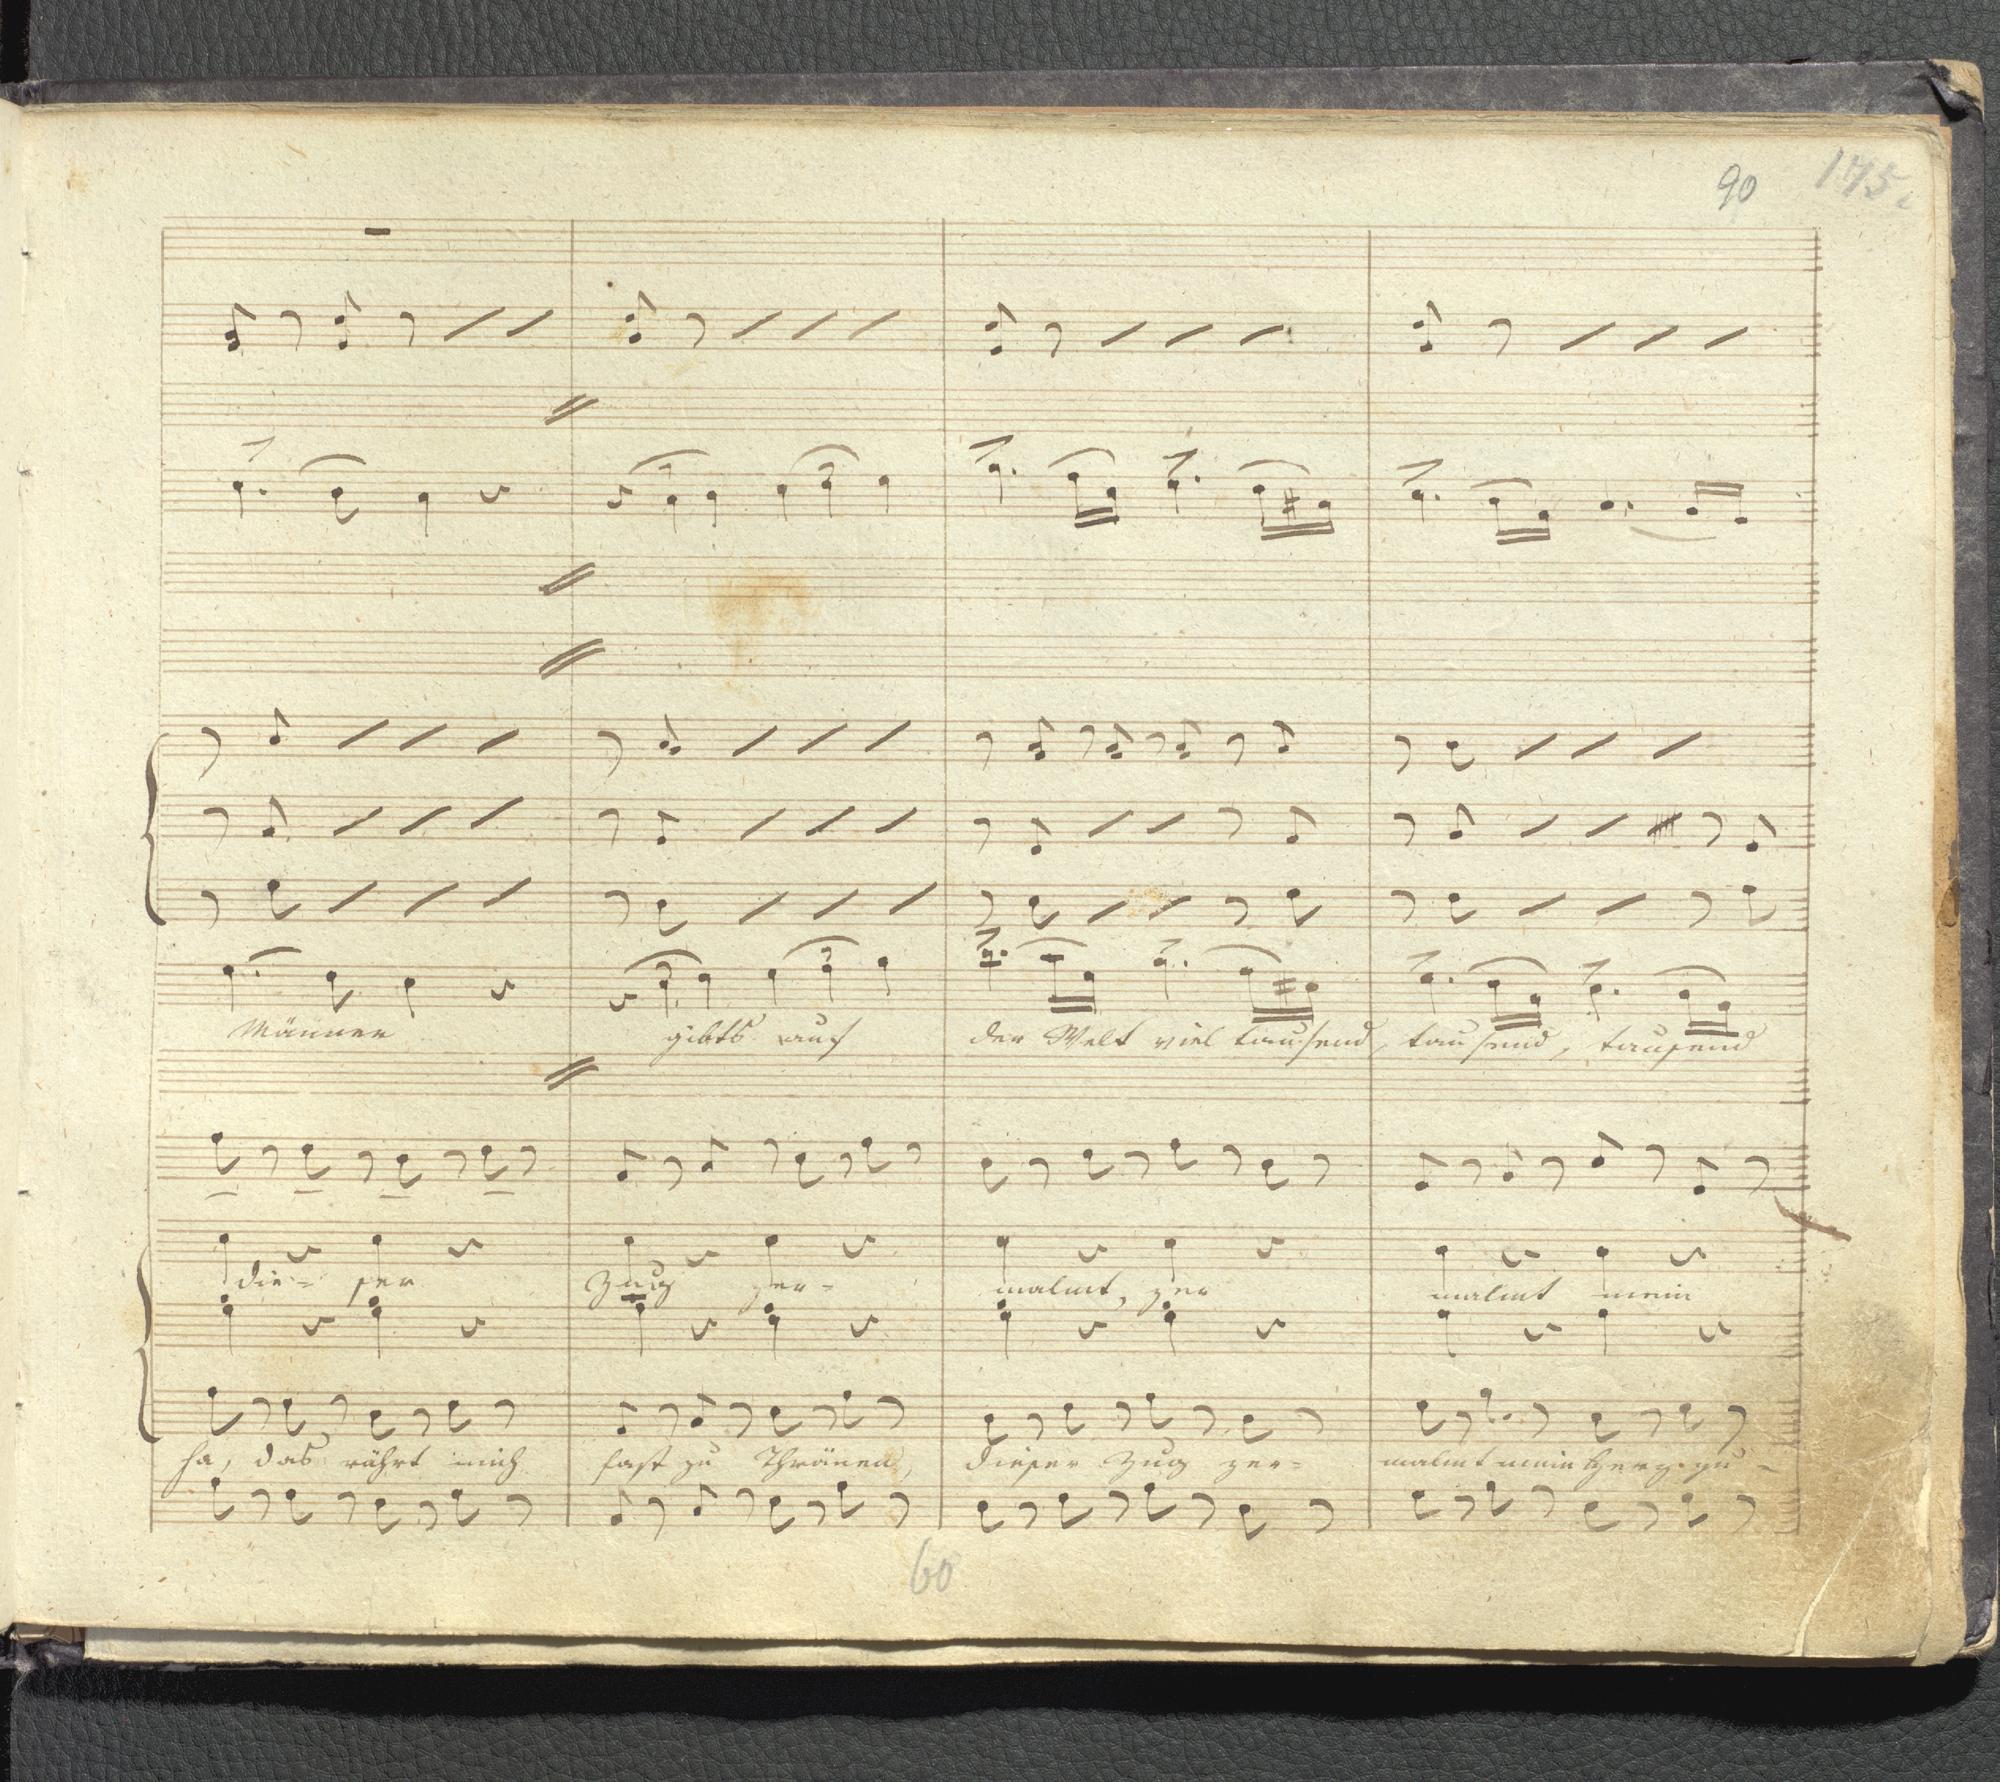 90 175.
Männer gibts auf der Welt viel tausend, tausend, tausend
die- ser Zug zer- malmt, zer malmt mein
ha, das rührt mich fast zu Thränen, dieser Zug zer= malmt mein Herz. zu -
60